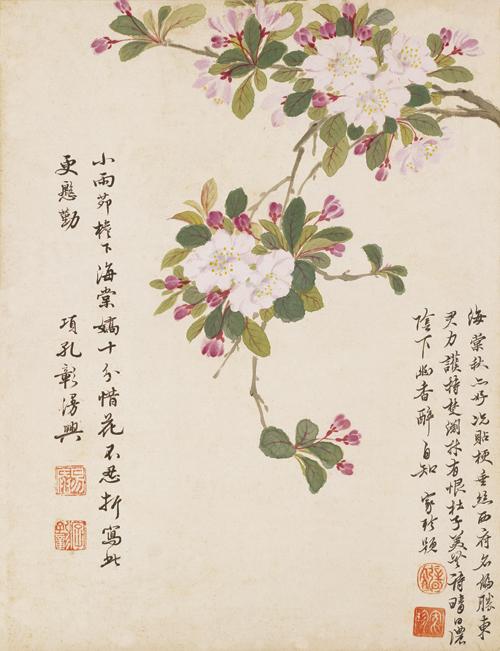 海棠秋亦好況貼梗垂絲西府名偏勝東
君力護持彭淵材有恨杜子美無詩晴日濃
陰下幽香醉自知 家珍題
小雨茆檐下海棠嬌十分惜花不忍折寫此
更慇勤 項孔彰漫興